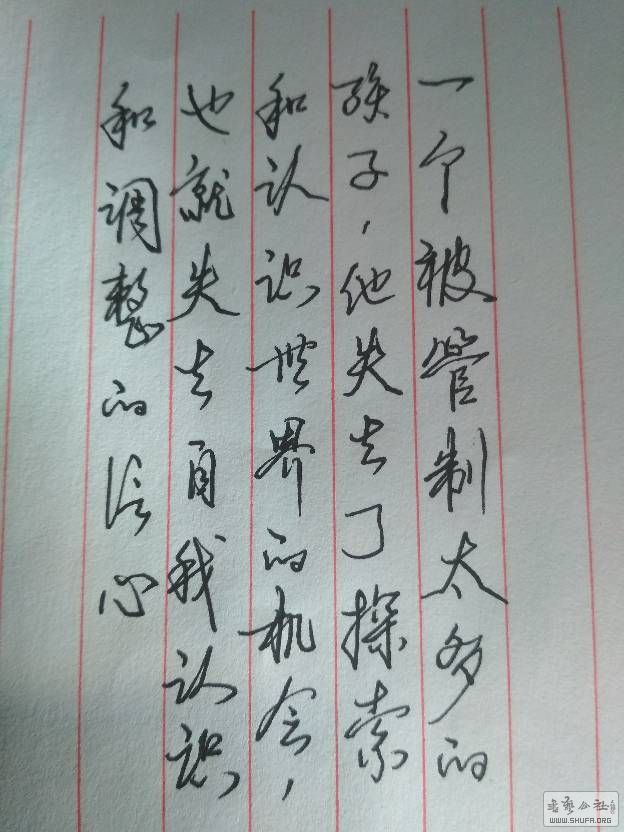 一个被管制太多的
孩子，他失去了探索
和认识世界的机会，
也就失去自我认识
和调整的信心
WWW.SHUFA.ORG